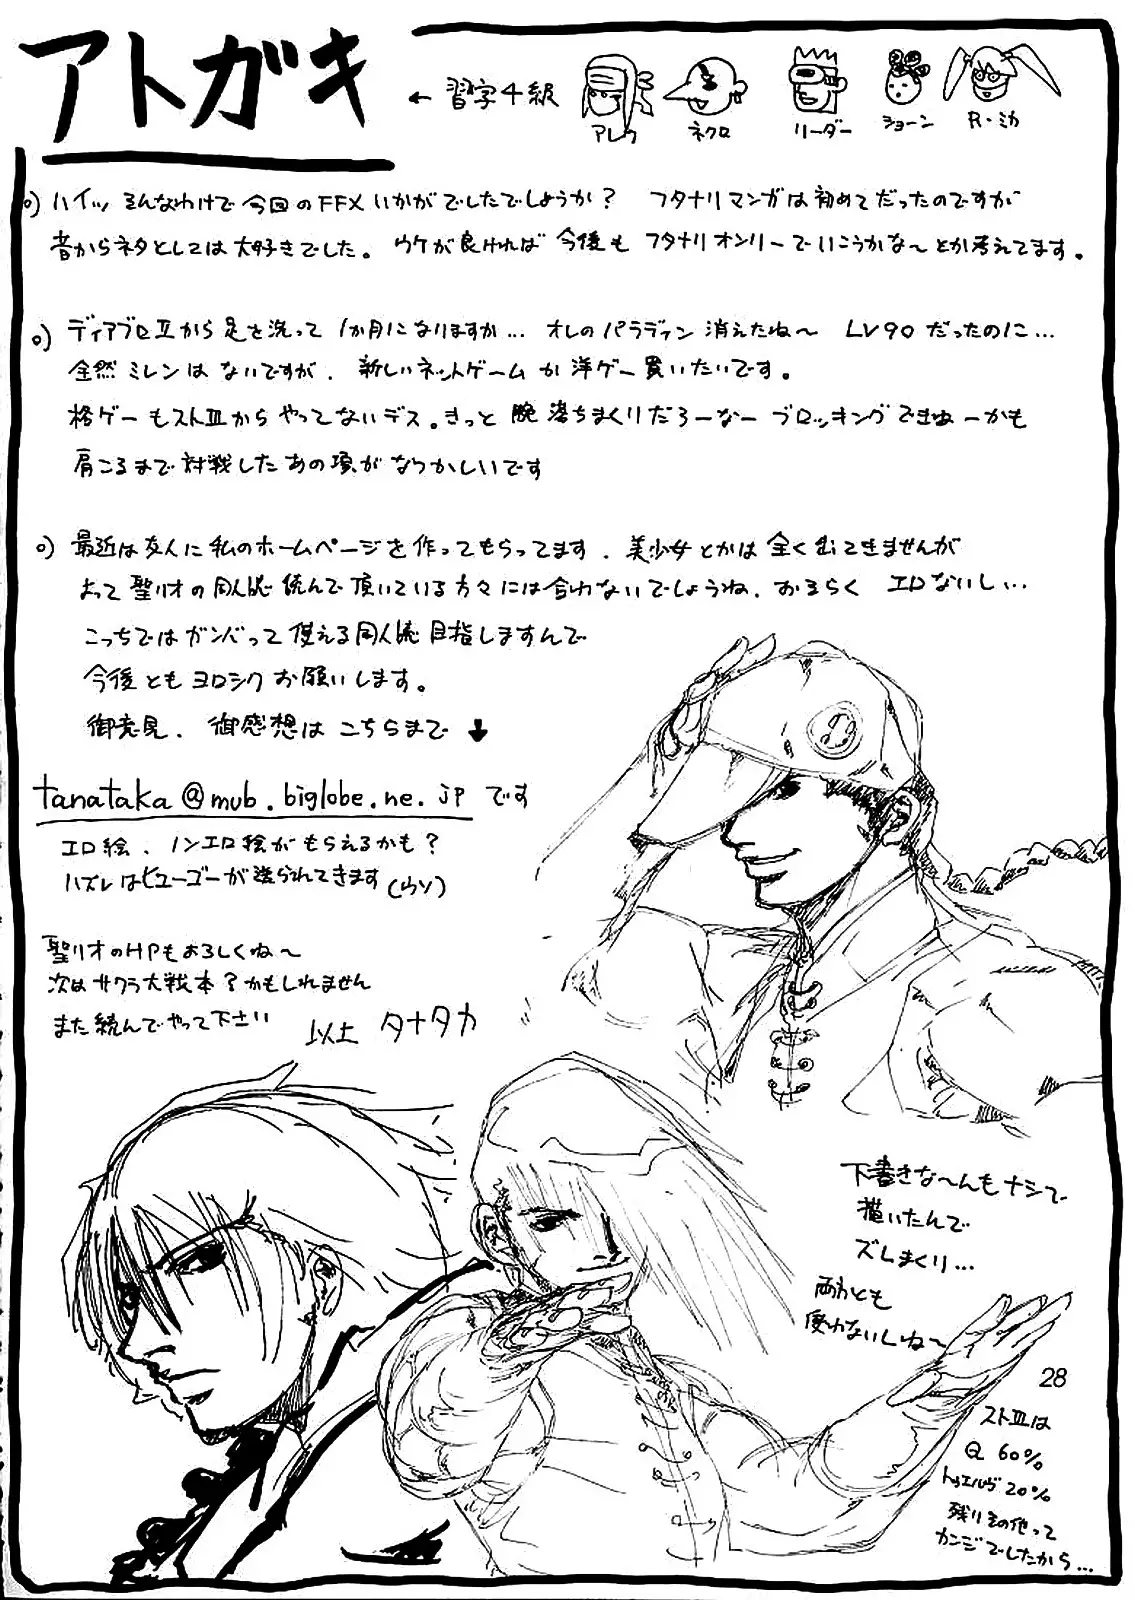 アトガキ
← 習字4級
アレク
ネクロ
リーダー
ショーン
R・ミカ
○) ハイッ そんなわけで今回のFFXいかがでしたでしょうか? フタナリマンガは初めてだったのですが
昔からネタとしては大好きでした。ウケが良ければ今後もフタナリオンリーでいこうかな〜とか考えてます。
○) ディアブロⅡから足を洗って1か月になりますか… オレのパラディン消えたね〜 LV90だったのに…
全然ミレンはないですが、新しいネットゲームか洋ゲー買いたいです。
格ゲーもストⅢからやってないデス。きっと腕落ちまくりだろーなー ブロッキングできねーかも
肩こるまで対戦したあの頃がなつかしいです
○) 最近は友人に私のホームページを作ってもらってます、美少女とかは全く出てきませんが
よって聖リオの同人誌読んで頂いている方々には合わないでしょうね、おそらく エロないし…
こっちではガンバって使える同人誌目指しますんで
今後ともヨロシクお願いします。
御意見、御感想はこちらまで ↓
tanataka@mub.biglobe.ne.jp です
エロ絵、ノンエロ絵がもらえるかも?
ハズレはヒューゴーが送られてきます(ウソ)
聖リオのHPもよろしくね〜
次はサクラ大戦本?かもしれません
また読んでやって下さい
以上 タナタカ
下書きな〜んもナシで
描いたんで
ズレまくり…
両わくとも
使わないしね〜
28
ストⅢは
Q 60%
トゥエルヴ20%
残りその他って
カンジでしたから…